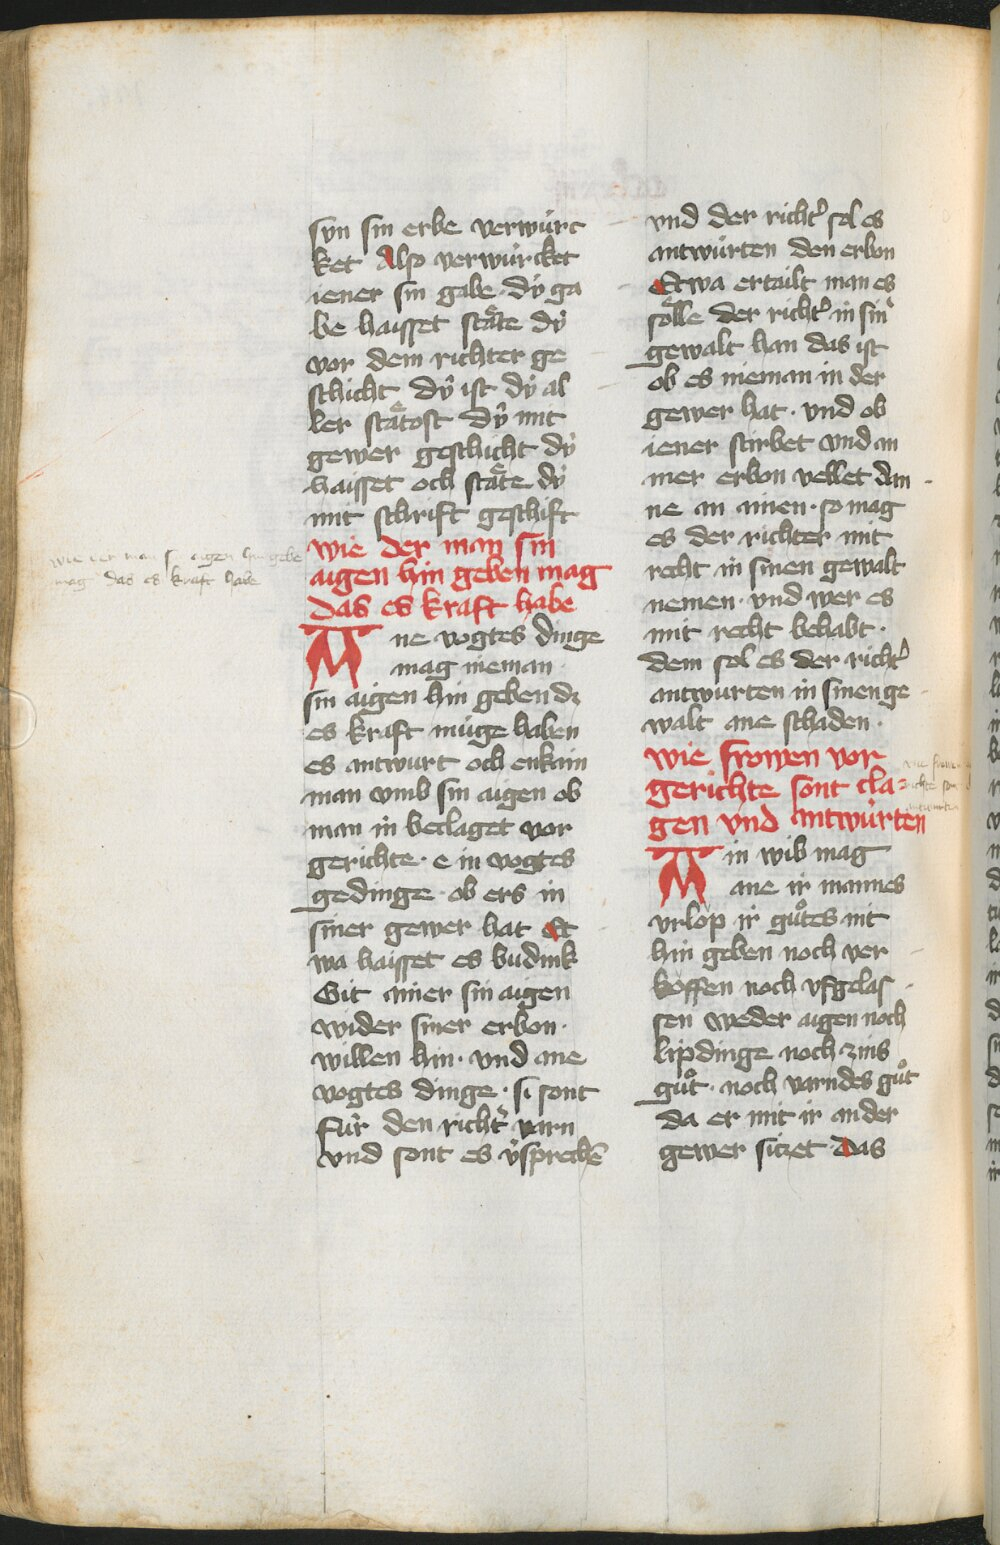 syn sin erbe verwúrc
ket Also verwúrcket
iener sin gabe. dÿ ga
be haisset stå̈te dÿ
vor dem richter ge
schicht dÿ ist dÿ al
ler stå̈tost dÿ mit
gewer geschicht dÿ
haisset och stå̈te dÿ
mit schrift geschift
wie der man sin
aigen hin geben mag
das es kraft habe
A ne vogtes dinge
mag nieman
sin aigen hin geben dz
es kraft múge haben
es antwurt och enkain
man vmb sin aigen ob
man in beclaget vor
gerichte. e in vogtes
gedinge. ob ers in
siner gewer hat Et
wa haisset es budink
Git ainer sin aigen
wider siner erbon.
willen hin. vnd ane
vogtes dinge. si sont
fúr den richt' varn
vnd sont es v̈sprechē
wie der man sin aigen hin gebe
mag das es kraft habe
vnd der richt' sol es
antwúrten den erbon
Etwa ertailt man es
sólle der richt' in sin'
gewalt han das ist
ob es nieman in der
gewer hat. vnd ob
iener stirbet vnd an
mer erbon vellet dan
ne an ainen. so mag
es der richter mit
recht in sinen gewalt
nemen. vnd wer es
mit recht behabt.
dem sol es der richt'
antwurten in sinen ge
walt ane schaden.
wie frowen vor
gerichte sont cla
gen vnd antwúrten
A in wib mag
ane ir mannes
vrlop ir gůtes nit
hin geben noch ver
koffen noch vfgelas
sen weder aigen noch
lipdinge noch zins
gůt. noch varndes gůt
da er mit ir an der
gewer sitzet das